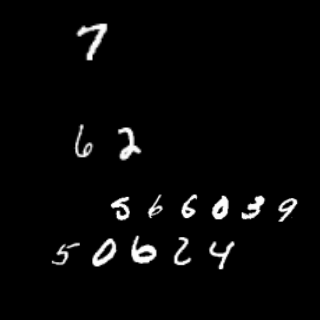 7
62
566039
50624